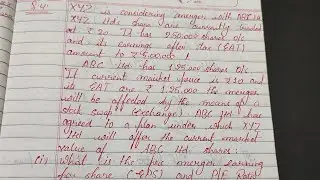 Q.4.
XYZ is considering merger with ABC Ltd
XYZ Ltd's share are currently traded
at ₹ 20. It has 250,000 shares o/s
and its earnings after tax (EAT)
amount to ₹ 500000
ABC Ltd has 1,25,000 shares o/s
If current market price is ₹ 10 and
its EAT are ₹ 1,25,000 the merger
will be affected by the means of a
stock swap (exchange) ABC Ltd has
agreed to a plan under which XYZ
Ltd will offer the current market
value of ABC Ltd shares:
(i) What is the pre merger earning
per share (EPS) and P/E Ratio